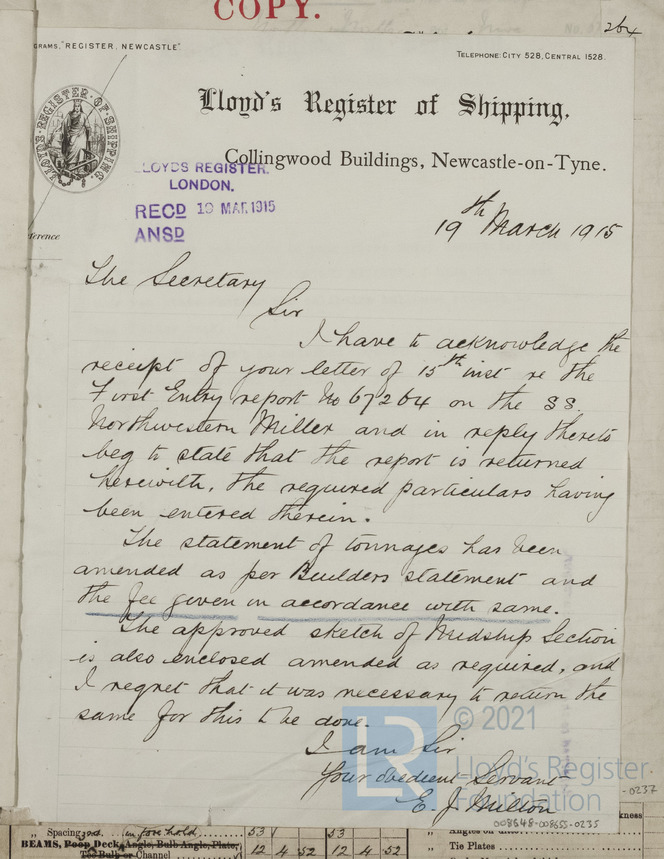 COPY.
264
GRAMS, "REGISTER, NEWCASTLE"
TELEPHONE: CITY 528, CENTRAL 1528.
LLOYD'S REGISTER OF SHIPPING
Lloyd's Register of Shipping,
Collingwood Buildings, Newcastle-on-Tyne.
LOYDS REGISTER.
LONDON.
RECD 19 MAR. 1915
ANSD
19th March 1915
ference
The Secretary
Sir
I have to acknowledge the
receipt of your letter of 15th inst re the
First Entry report No 67264 on the SS.
Northwestern Miller and in reply thereto
beg to state that the report is returned
herewith, the required particulars having
been entered therein.
The statement of tonnages has been
amended as per Builders statement and
the fee given in accordance with same.
The approved sketch of Midship Section
is also enclosed amended as required, and
I regret that it was necessary to return the
same for this to be done.
I am Sir
Your obedient Servant
E. J. Milton
LR
© 2021
Lloyd's Register
Foundation
-0237
008648-008655-0235
" Spacing in fore hold 53 53
BEAMS, Poop Deck, Angle, Bulb Angle, Plate, 12 4 52 12 4 52
Tee Bulb or Channel
kness
" Tie Plates